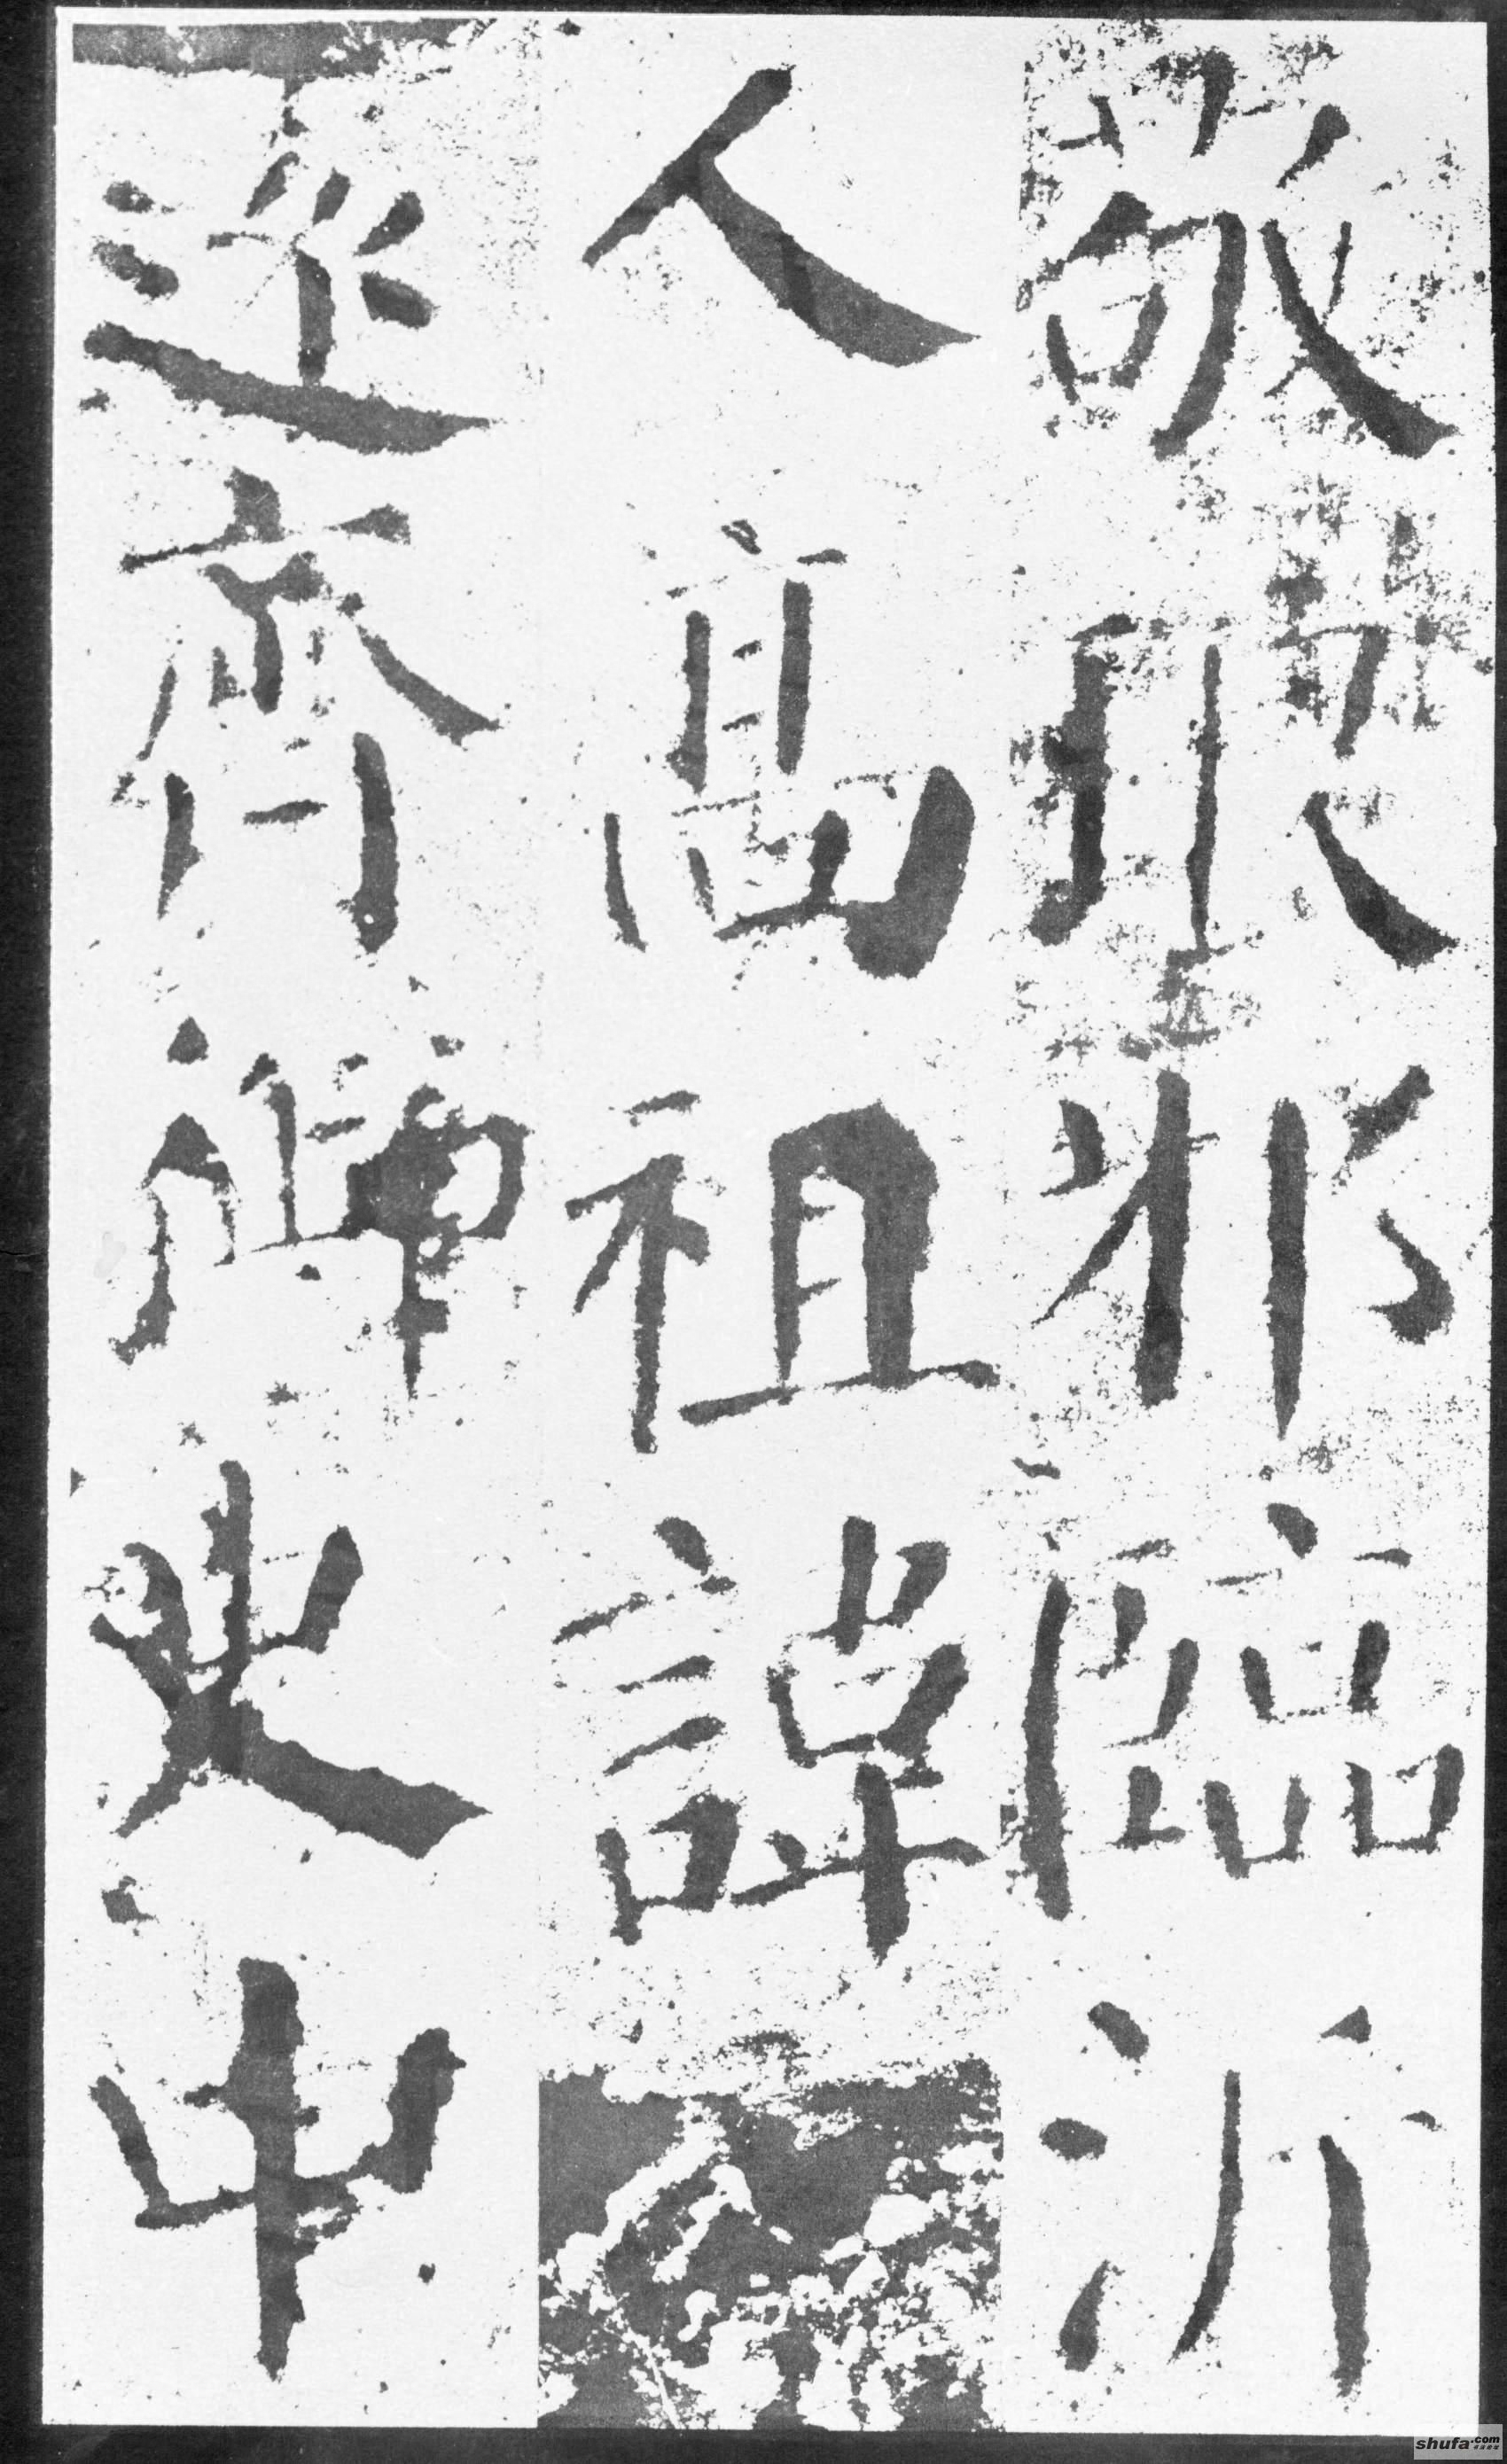 敬琅邪臨沂
人高祖諱
遠齊御史中
shufa.com